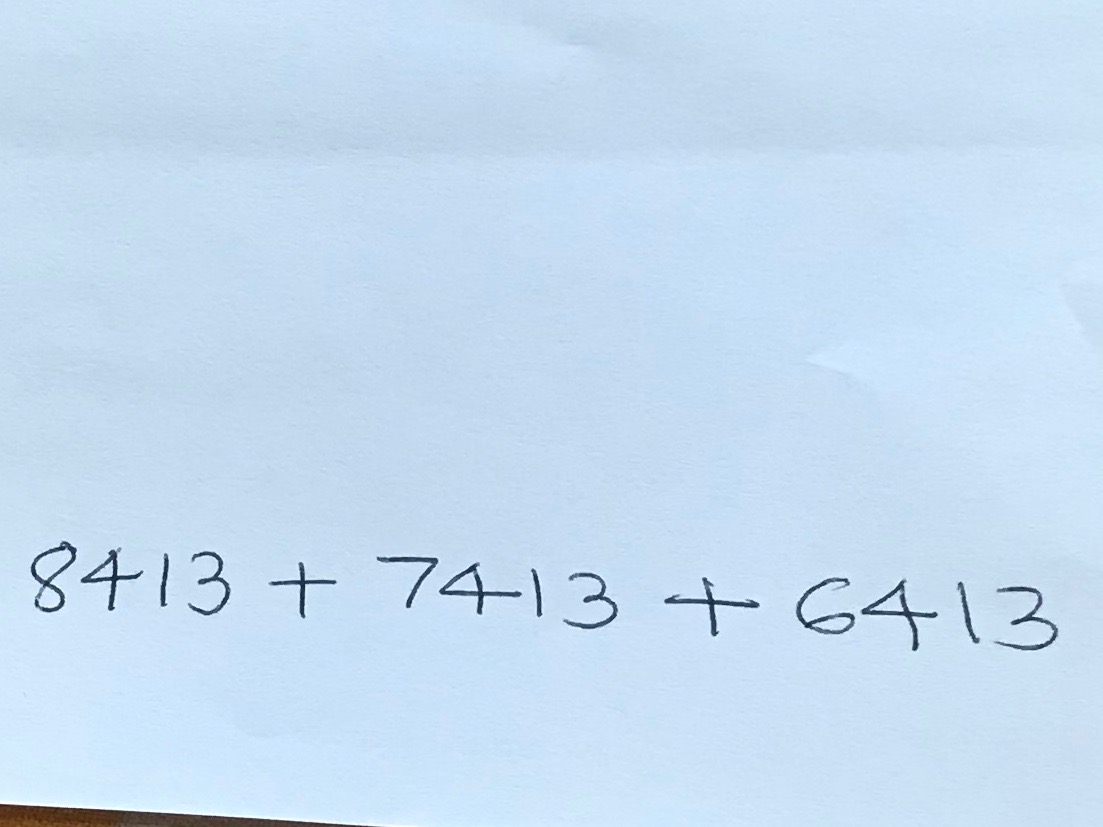 8413 + 7413 + 6413